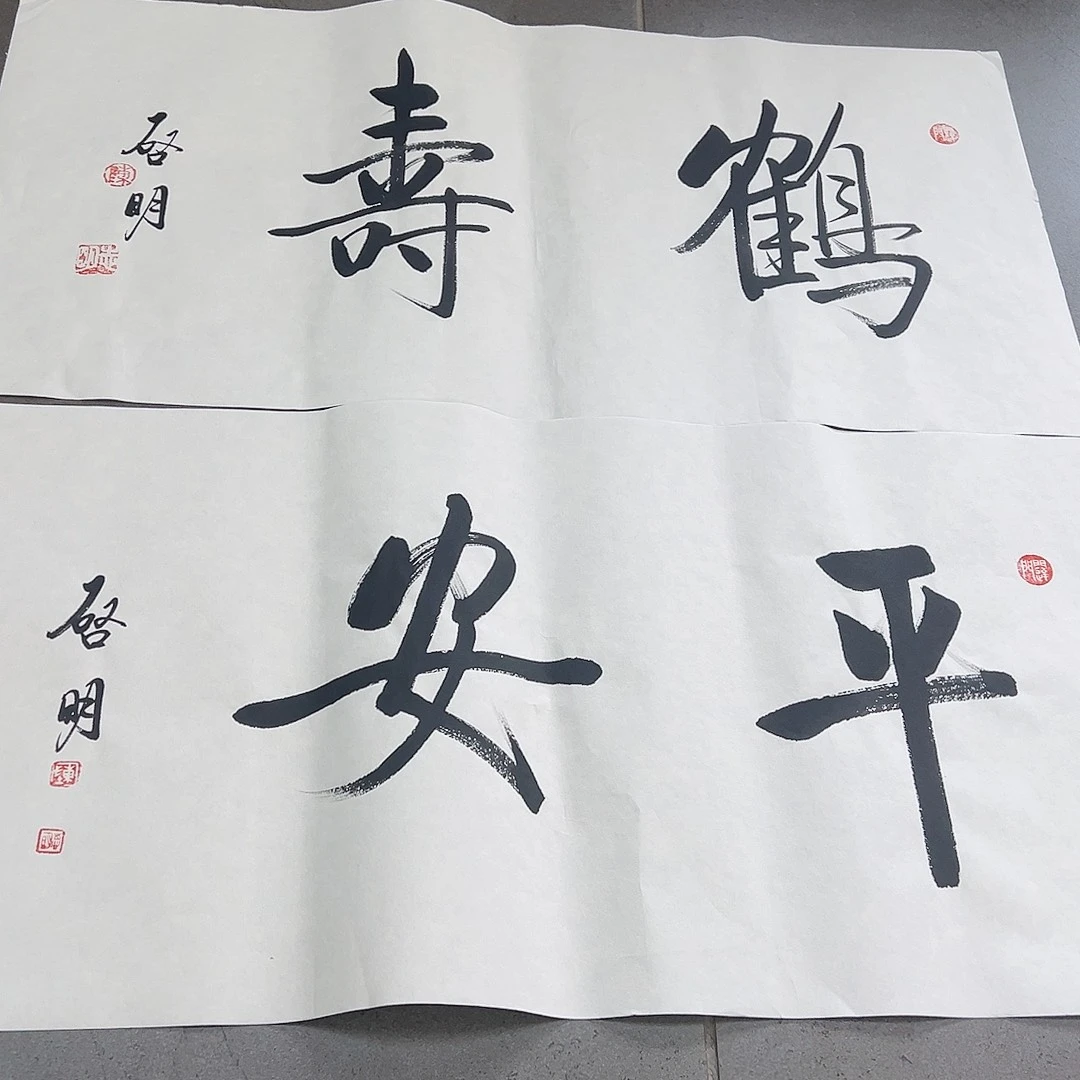 鶴壽
啓明
陳
平安
啓明
陳